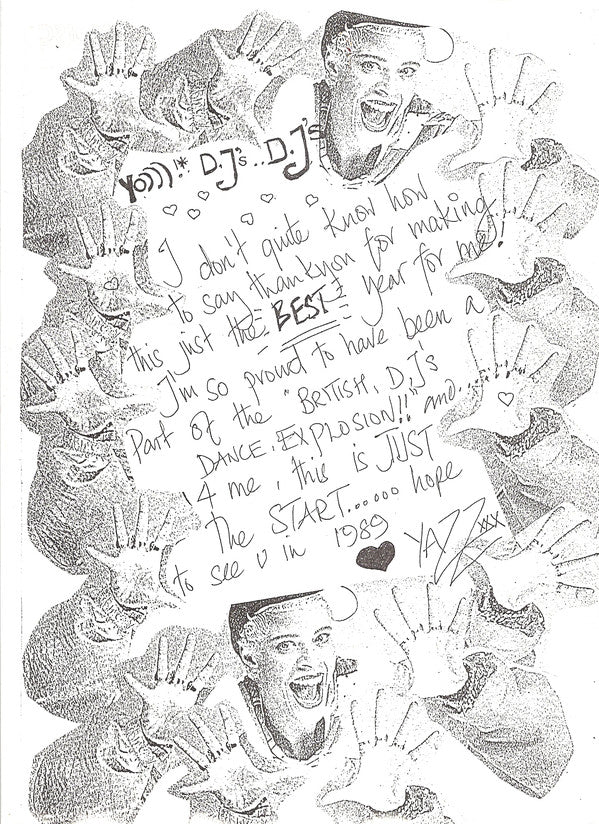 Yo)))!* D.J's.. D.J's
I don't quite know how
to say thankyou for making
this just the BEST year for me!
I'm so proud to have been a
Part of the "BRITISH, D.J's
DANCE, EXPLOSION!!" and...
'4 me, this is JUST
The START...... hope
to see U in 1989
YAZZ xxx